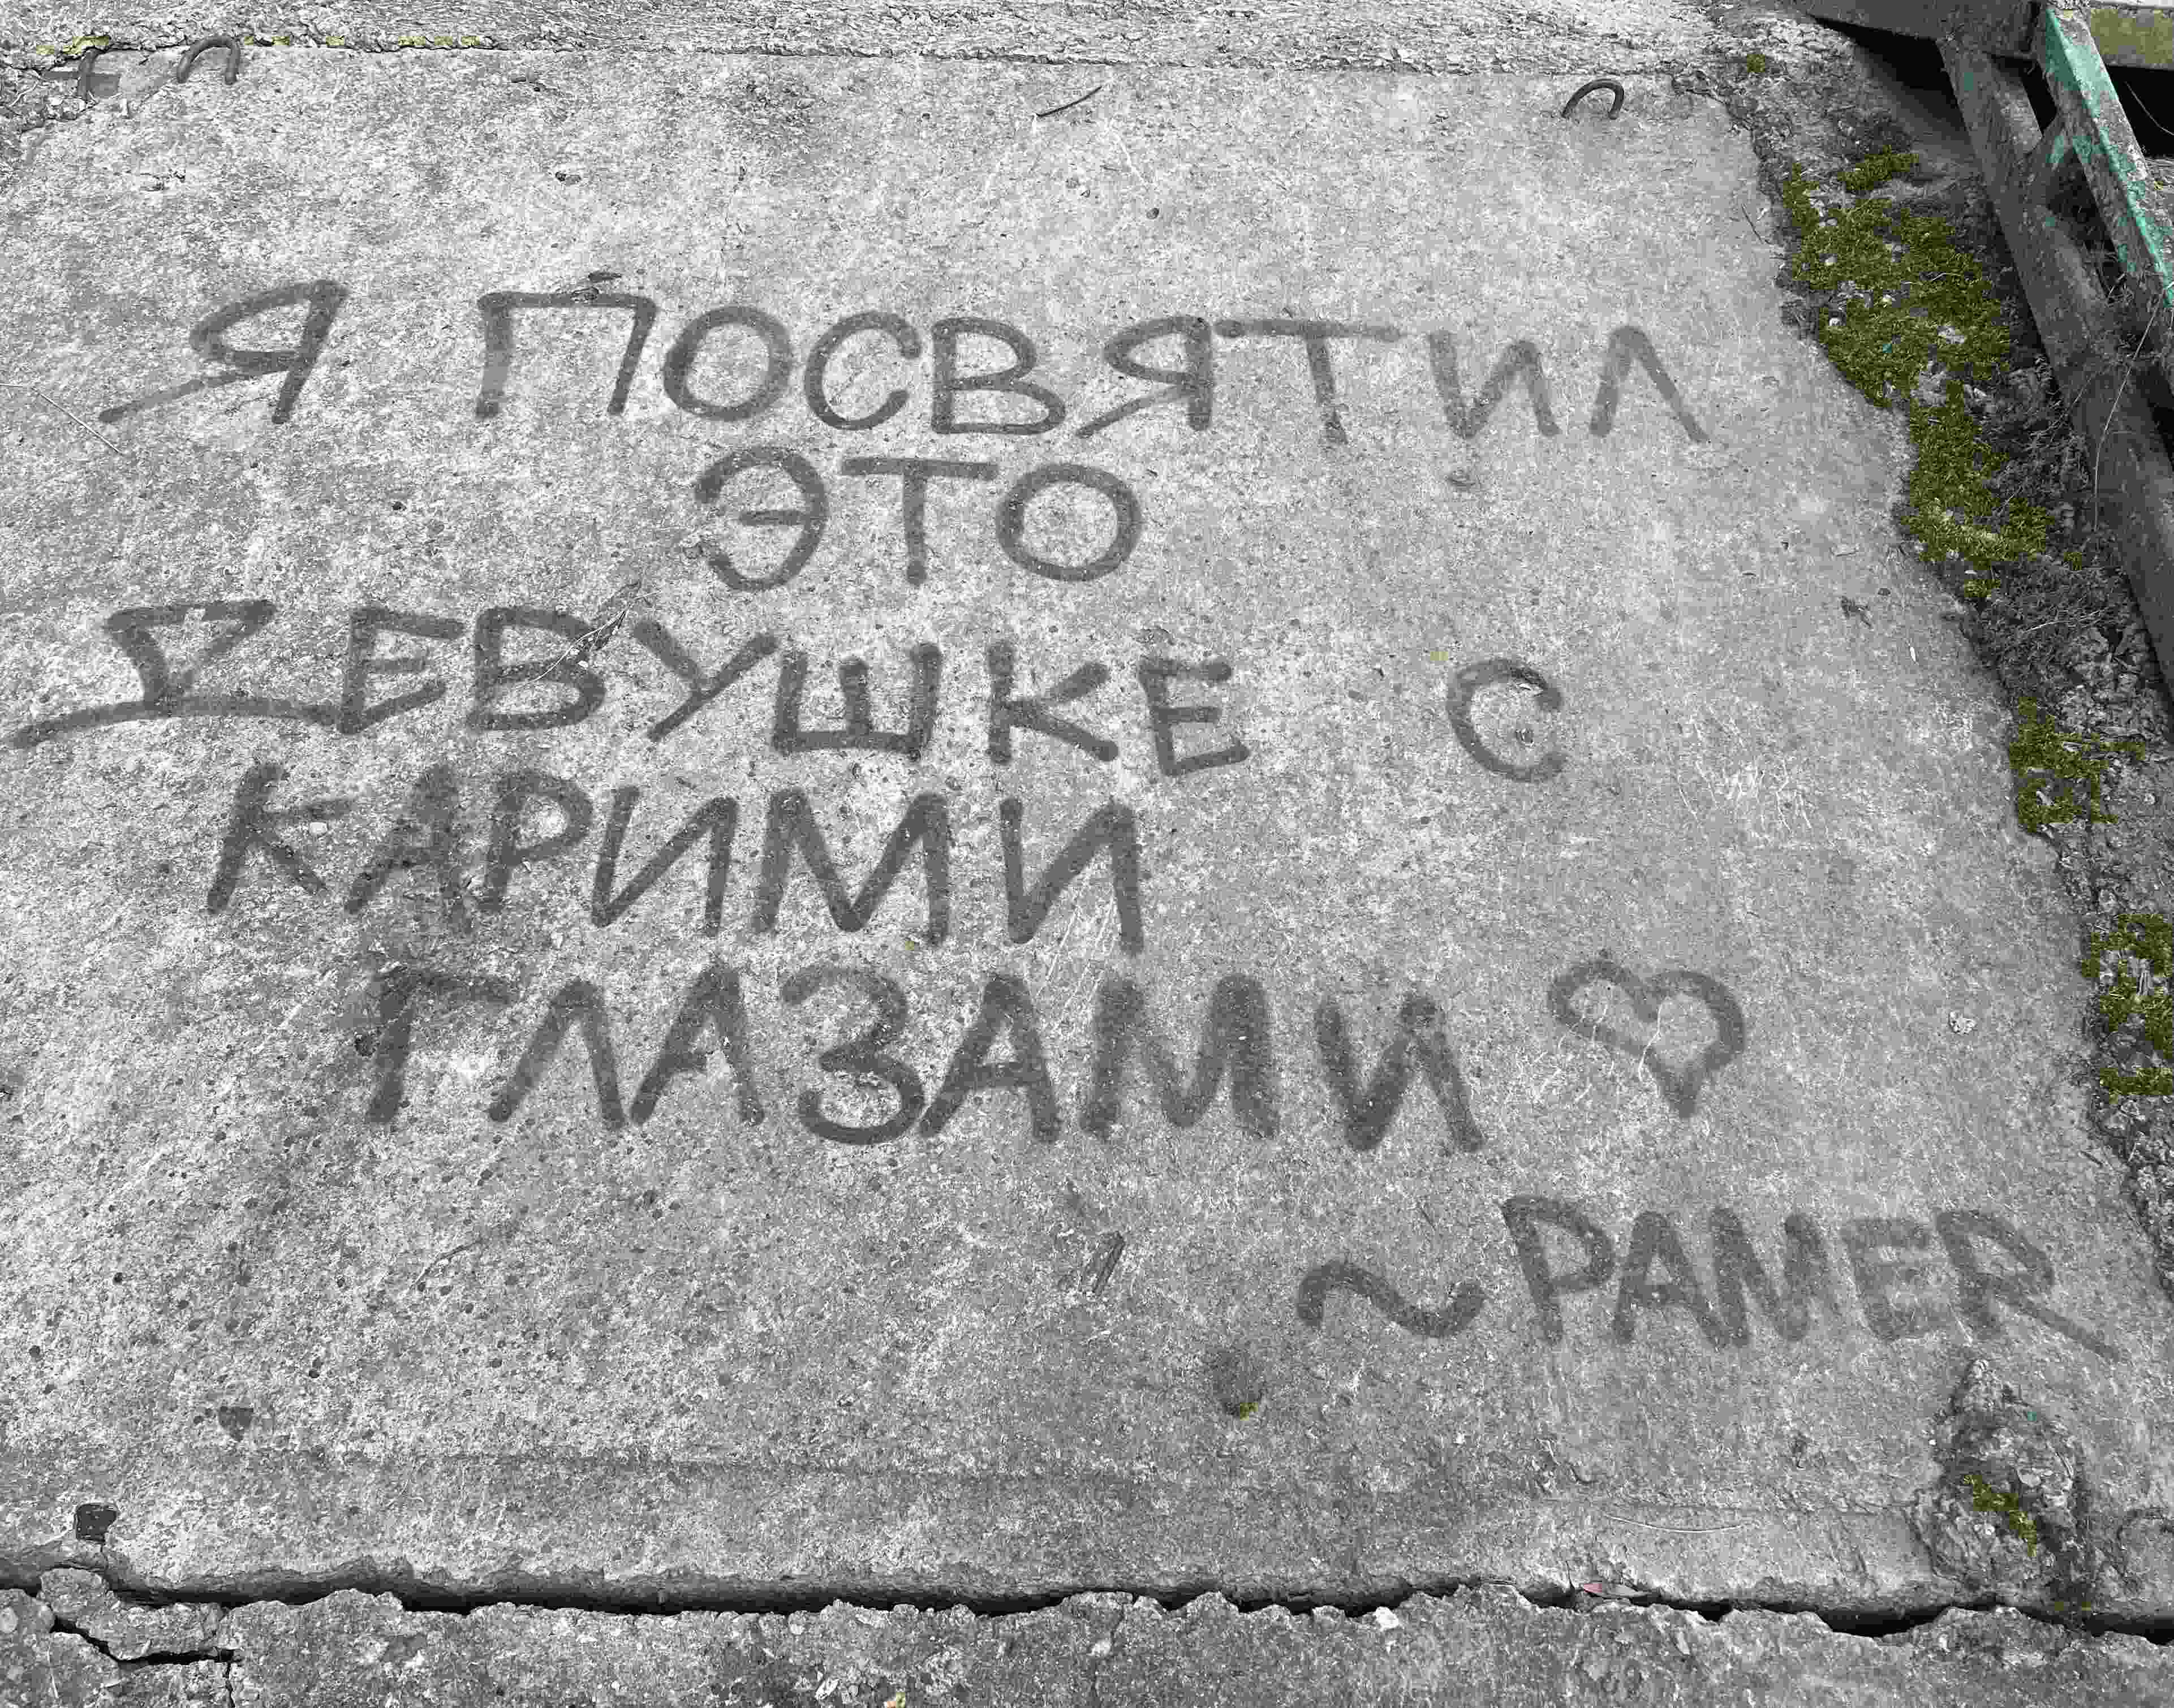 Я ПОСВЯТИЛ
ЭТО
ДЕВУШКЕ С
КАРИМИ
ГЛАЗАМИ ♡
~ PAMER